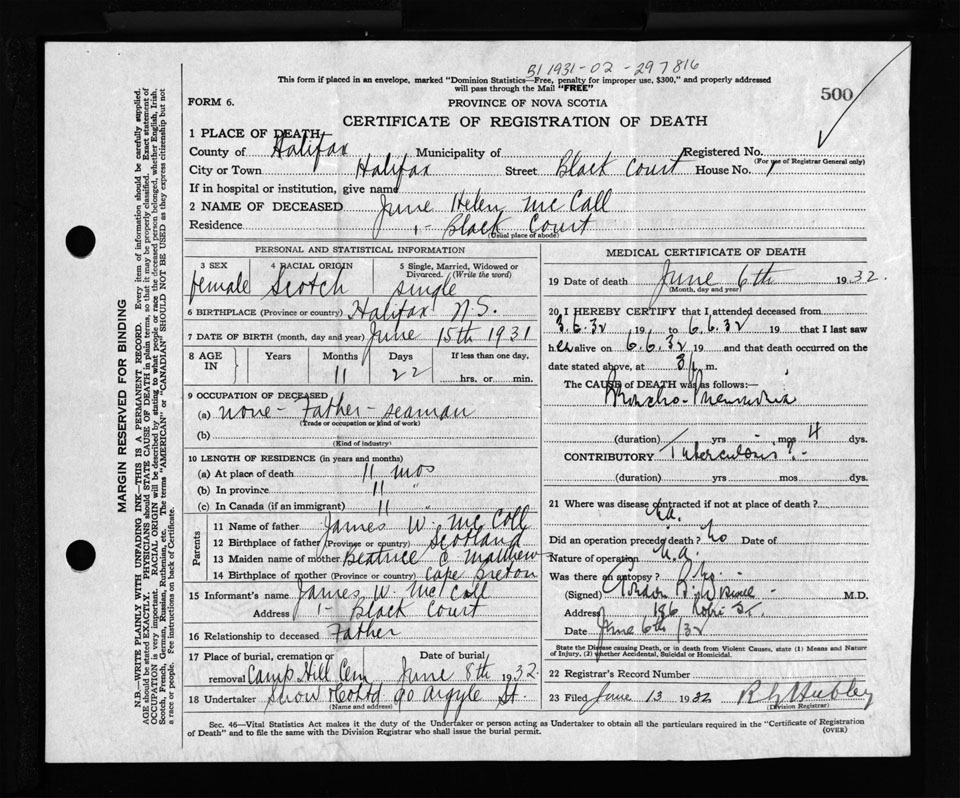 B1 1931-02-297816
This form if placed in an envelope, marked "Dominion Statistics—Free, penalty for improper use, $300," and properly addressed
will pass through the Mail "FREE"
500
FORM 6.
PROVINCE OF NOVA SCOTIA
CERTIFICATE OF REGISTRATION OF DEATH
1 PLACE OF DEATH
County of Halifax Municipality of Registered No.
(For use of Registrar General only)
City or Town Halifax Street Black Court House No. 1
If in hospital or institution, give name
2 NAME OF DECEASED June Helen McCall
Residence 1- Black Court
(Usual place of abode)
PERSONAL AND STATISTICAL INFORMATION
3 SEX female
4 RACIAL ORIGIN Scotch
5 Single, Married, Widowed or Divorced. (Write the word) single
6 BIRTHPLACE (Province or country) Halifax N.S.
7 DATE OF BIRTH (month, day and year) June 15th 1931
8 AGE IN Years Months Days If less than one day,
11 22 hrs. or min.
9 OCCUPATION OF DECEASED
(a) none - Father - seaman
(Trade or occupation or kind of work)
(b)
(Kind of industry)
10 LENGTH OF RESIDENCE (in years and months)
(a) At place of death 11 mos
(b) In province 11 "
(c) In Canada (if an immigrant) 11 "
Parents
11 Name of father James W. McCall
12 Birthplace of father (Province or country) Scotland
13 Maiden name of mother Beatrice C Matthew
14 Birthplace of mother (Province or country) Cape Breton
15 Informant's name James W. McCall
Address 1- Black Court
16 Relationship to deceased Father
17 Place of burial, cremation or removal Camp Hill Cem Date of burial June 8th 1932
18 Undertaker Snow Co Ltd 90 Argyle St.
(Name and address)
MEDICAL CERTIFICATE OF DEATH
19 Date of death June 6th 1932.
(Month, day and year)
20 I HEREBY CERTIFY that I attended deceased from
3.6.32 19 to 6.6.32 19 that I last saw
her alive on 6.6.32 19 and that death occurred on the
date stated above, at 3 p m.
The CAUSE of DEATH was as follows:—
Broncho-Pneumonia
(duration) yrs mos 4 dys.
CONTRIBUTORY Tuberculosis?-
(duration) yrs mos dys.
21 Where was disease contracted if not at place of death?
n.a.
Did an operation precede death? No Date of
Nature of operation n.a.
Was there an autopsy? No
(Signed) M.D.
Address 186 St.
Date June 6th/32
State the Disease causing Death, or in death from Violent Causes, state (1) Means and Nature
of Injury, (2) whether Accidental, Suicidal or Homicidal.
22 Registrar's Record Number
23 Filed June 13 1932 Hubley
(Division Registrar)
Sec. 46—Vital Statistics Act makes it the duty of the Undertaker or person acting as Undertaker to obtain all the particulars required in the "Certificate of Registration
of Death" and to file the same with the Division Registrar who shall issue the burial permit.
(OVER)
MARGIN RESERVED FOR BINDING
N.B.—WRITE PLAINLY WITH UNFADING INK—THIS IS A PERMANENT RECORD. Every item of information should be carefully supplied.
AGE should be stated EXACTLY. PHYSICIANS should STATE CAUSE OF DEATH in plain terms, so that it may be properly classified. Exact statement of
OCCUPATION is very important. RACIAL ORIGIN will be described by stating to what people or race the deceased person belonged, whether English, Irish,
Scotch, French, German, Russian, Ruthenian, etc. The terms "AMERICAN" or "CANADIAN" SHOULD NOT BE USED as they express citizenship but not
a race or people. See instructions on back of Certificate.